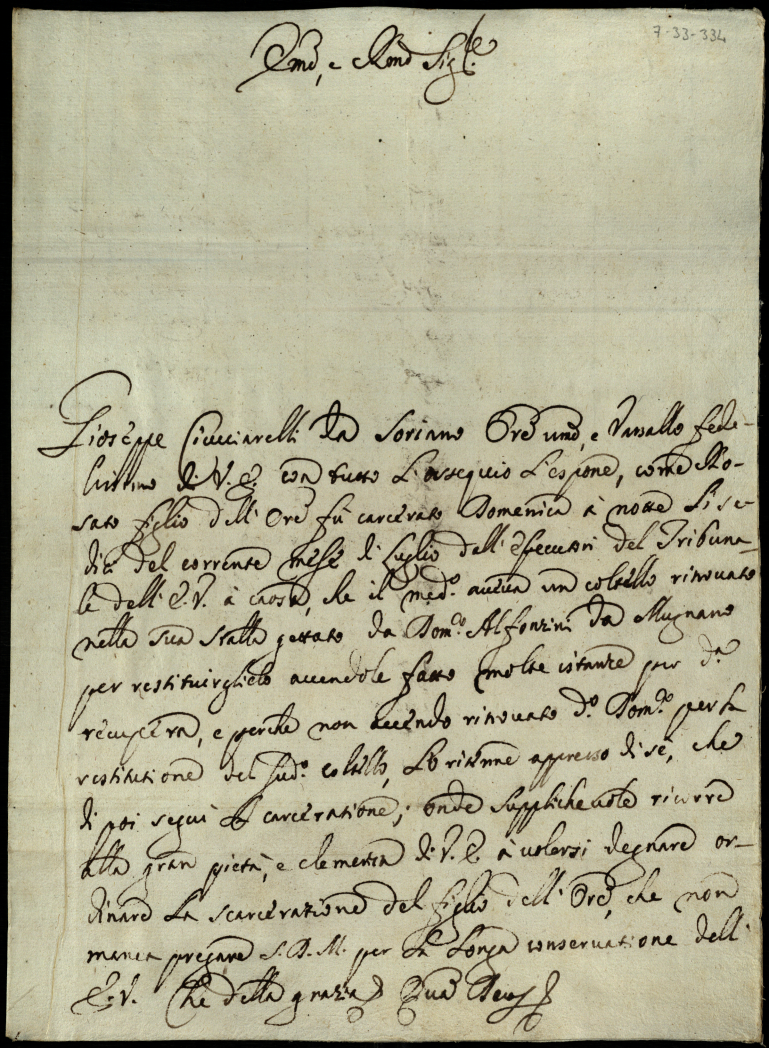 7-33-334
Em.o, e Rmo Sig.re
Gioseppe Ciucciarelli da Soriano Ore umo, e Vassallo fede-
lissimo di V. E. con tutto l'ossequio l'espone, come Ro-
sato figlio dell'Ore fù carcerato Domenica à notte li se-
dici del corrente mese di Luglio dall'essecutori del Tribuna-
le dell'E.V. à causa, che il med.o aueua un coltello ritrouato
nella sua stalla gettato da Dom.co Alfonzini da Mugnano
per restituirglielo auendole fatto molte istanze per d.a
recupera, e perche non auendo ritrouato d.o Dom.co per la
restitutione del sud.o coltello, lo ritenne appresso di se, che
di poi seguì la carceratione; onde supplicheuole ricorre
alla gran pietà, e clemenza di V. E. à uolersi degnare or-
dinare la scarcerazione del figlio dell'Ore, che non
manca pregare S. D. M. per la longa conseruatione dell'
E.V. Che della grazia Quam Deus